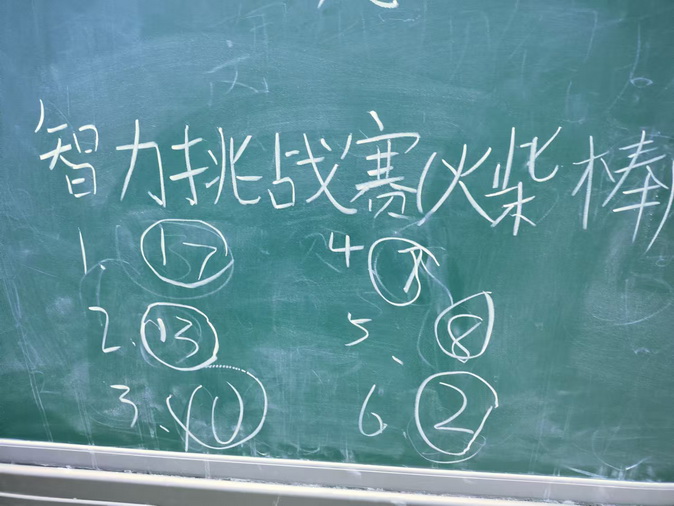 智力挑战赛(火柴棒)
1. 17
2. 13
3. 10
4 8
5、 8
6. 2